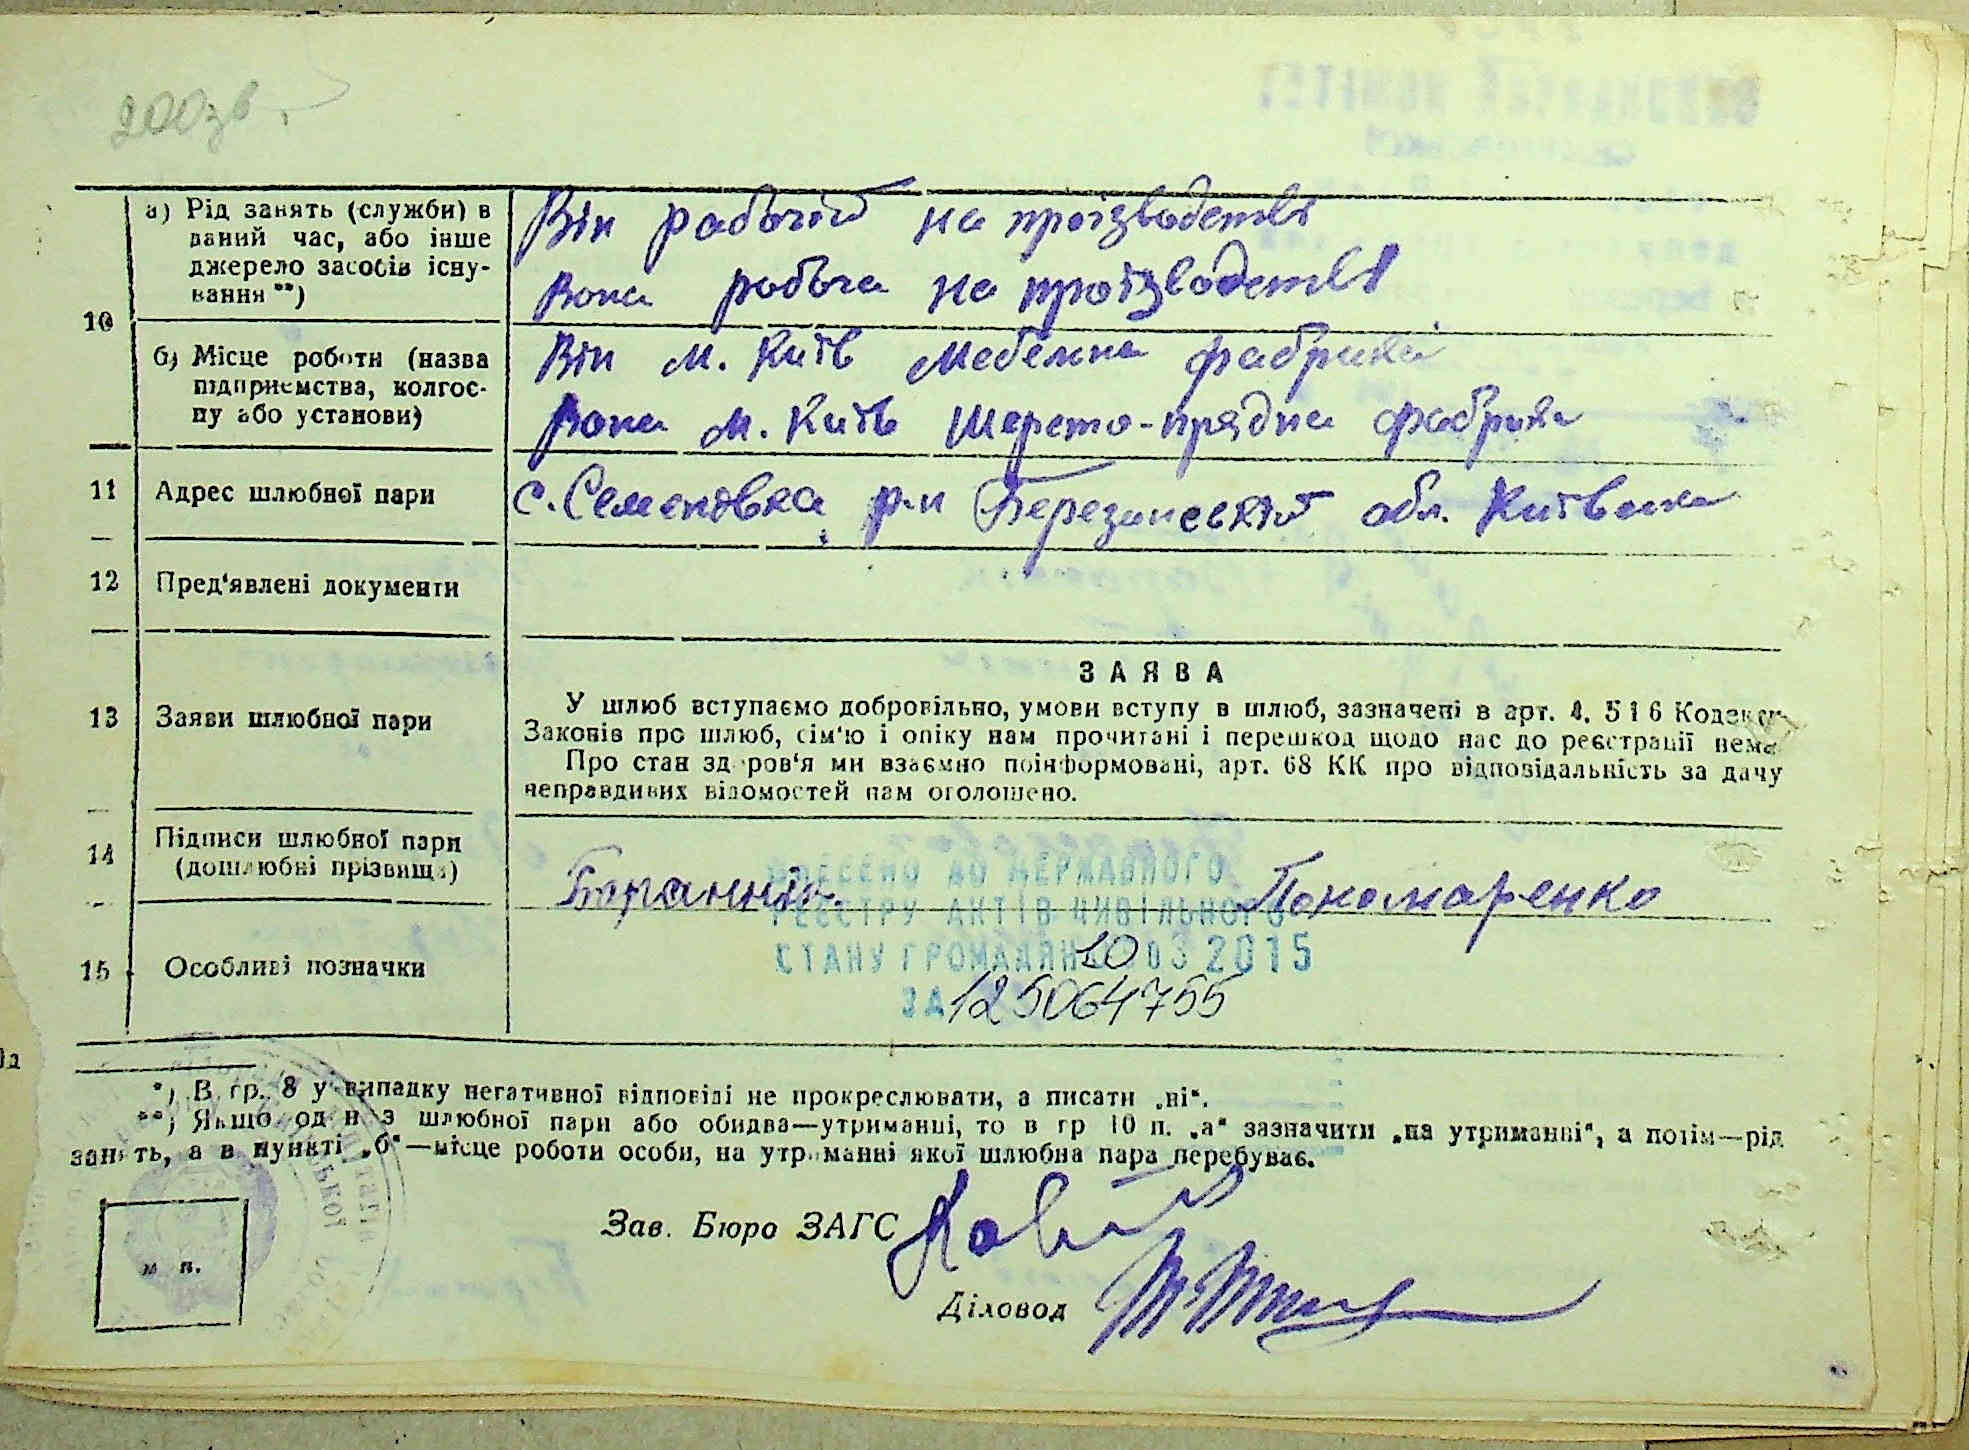 200зв.
10
а) Рід занять (служби) в
даний час, або інше
джерело засобів існу-
вання **)
Він рабочій на проізводстві
Вона рабоча на проізводстві
б) Місце роботи (назва
підприємства, колгос-
пу або установи)
Він м. Київ Мебельна фабрика
Вона м. Київ Шерсто-прядна фабрика
11 Адрес шлюбної пари
с. Семеновка р-н Березанський обл. Київська
12 Пред'явлені документи
13 Заяви шлюбної пари
ЗАЯВА
У шлюб вступаємо добровільно, умови вступу в шлюб, зазначені в арт. 4. 5 і 6 Кодексу
Законів про шлюб, сім'ю і опіку нам прочитані і перешкод щодо нас до реєстрації нема.
Про стан здоров'я ми взаємно поінформовані, арт. 68 КК про відповідальність за дачу
неправдивих відомостей нам оголошено.
14 Підписи шлюбної пари
(дошлюбні прізвища)
Бараннік Пономаренко
ВНЕСЕНО ДО ДЕРЖАВНОГО
РЕЄСТРУ АКТІВ ЦИВІЛЬНОГО
СТАНУ ГРОМАДЯН 10 03 2015
ЗА 125064755
15 Особливі позначки
*) В гр. 8 у випадку негативної відповіді не прокреслювати, а писати „ні“.
**) Якщо один з шлюбної пари або обидва—утриманці, то в гр 10 п. „а“ зазначити „на утриманні“, а потім—рід
занять, а в пункті „б“—місце роботи особи, на утриманні якої шлюбна пара перебуває.
м п.
Зав. Бюро ЗАГС
Діловод